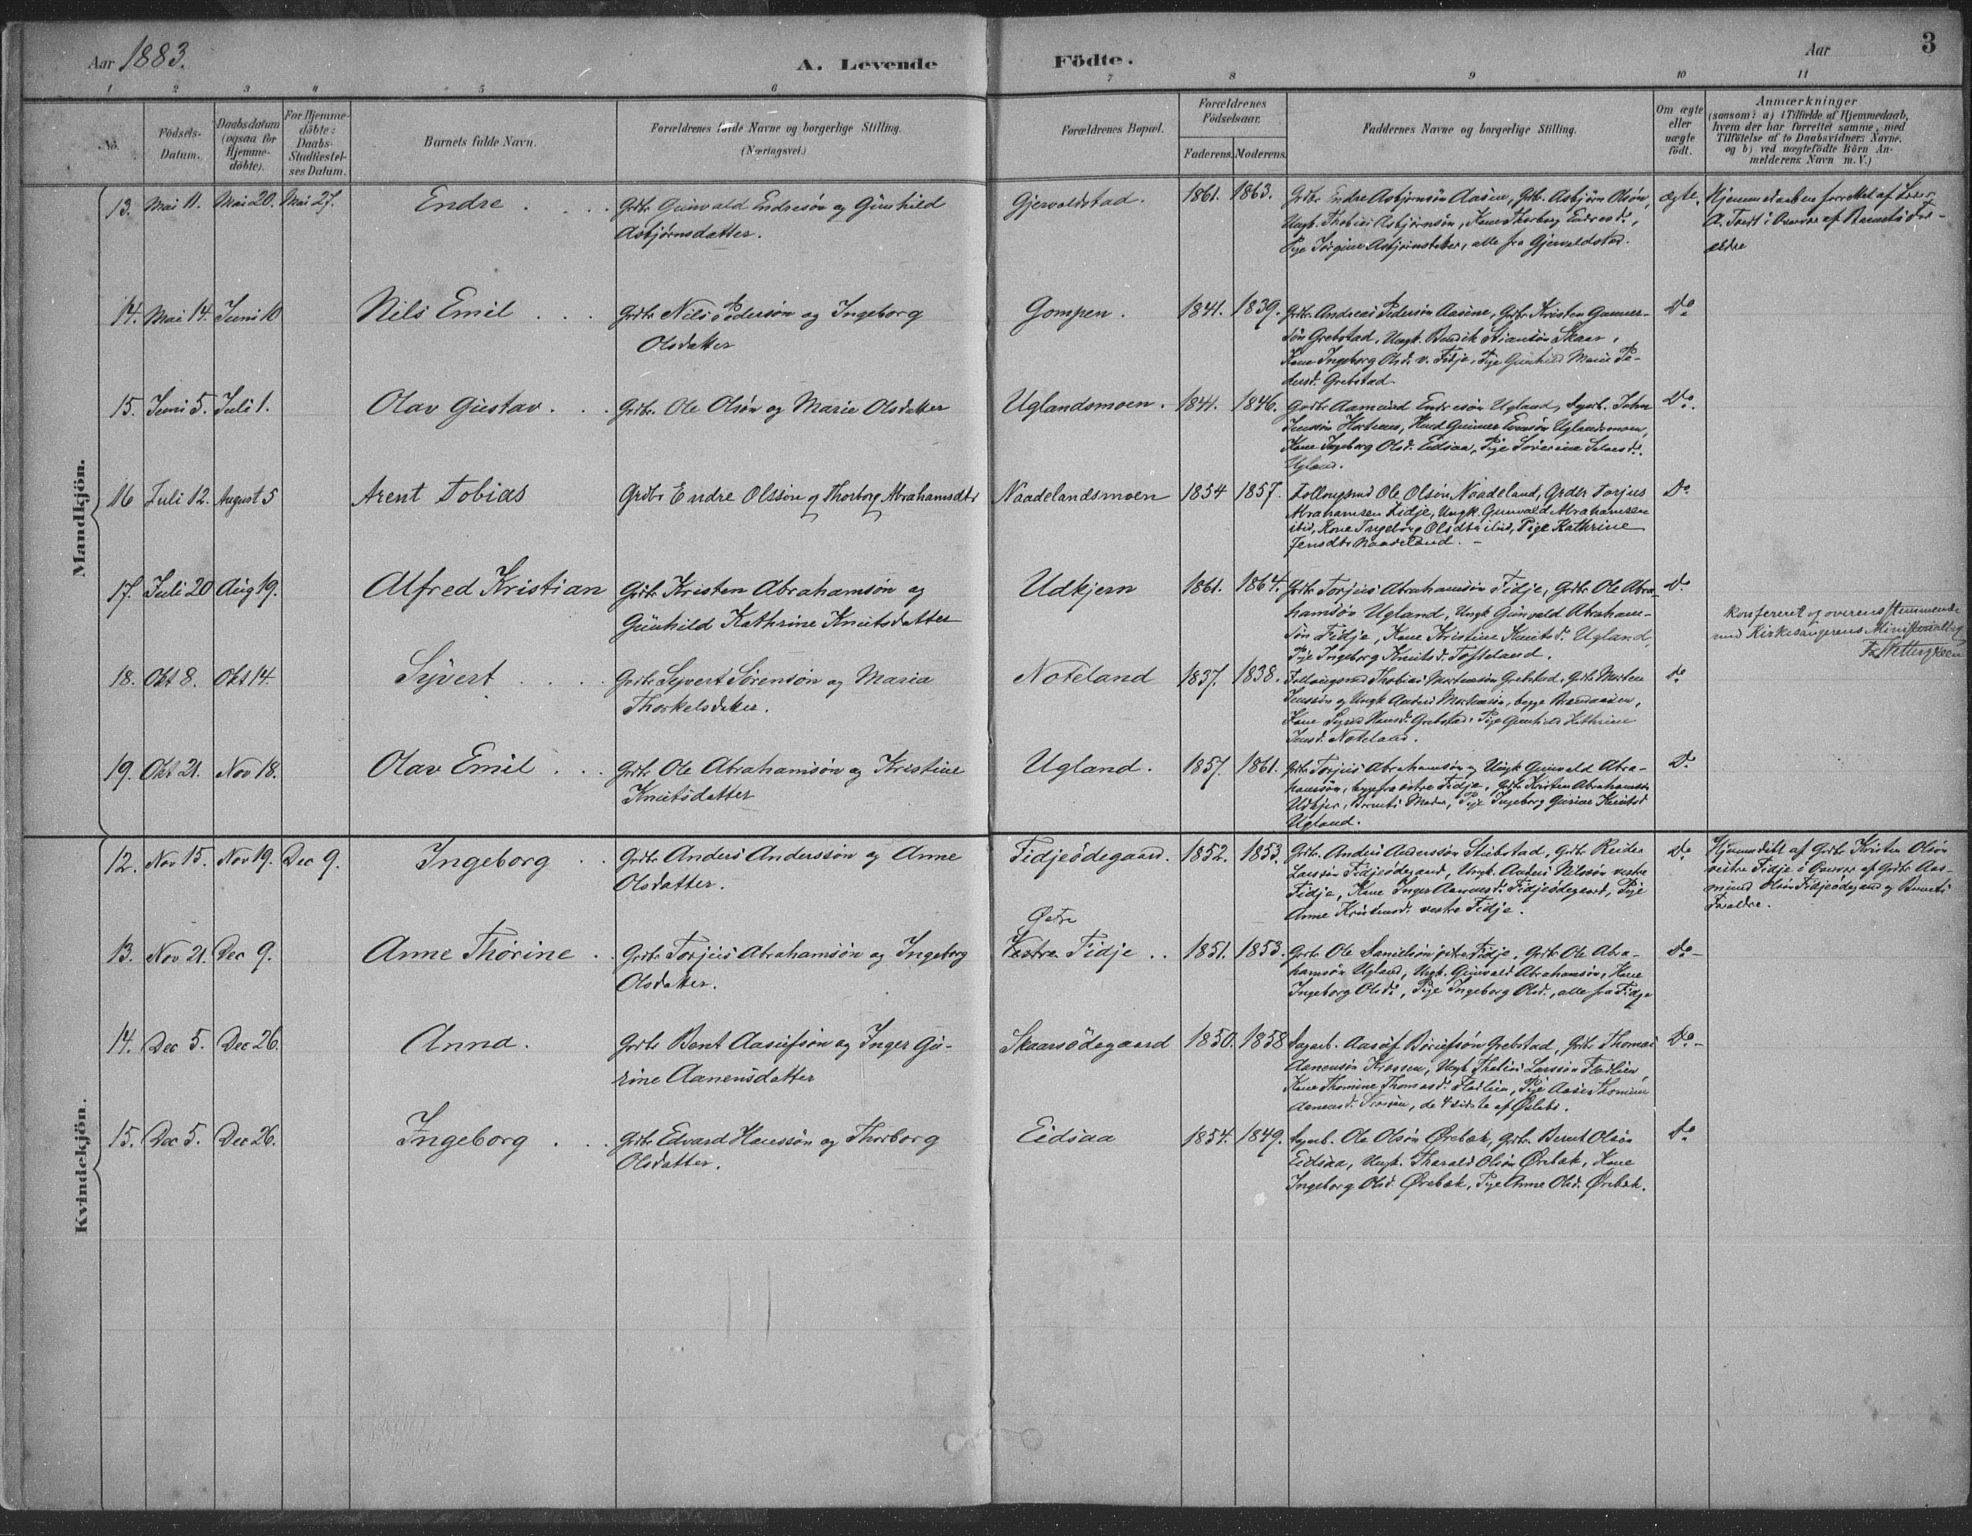 Aar 1883.
A. Levende Födte.
Aar
3
1 2 3 4 5 6 7 8 9 10 11
No.
Födsels-
Datum.
Daabsdatum
(ogsaa for
Hjemme-
döbte).
For Hjemme-
döbte:
Daabs-
Stadfæstel-
ses Datum.
Barnets fulde Navn.
Forældrenes fulde Navne og borgerlige Stilling.
(Næringsvei.)
Forældrenes Bopæl.
Forældrenes
Födselsaar.
Faderens. Moderens.
Faddernes Navne og borgerlige Stilling.
Om ægte
eller
uægte
födt.
Anmærkninger
(saasom: a) i Tilfælde af Hjemmedaab,
hvem der har forrettet samme, med
Tilföielse af to Daabsvidners Navne,
og b) ved uægtefödte Börn An-
melderens Navn m. V.)
Mandkjön.
13. Mai 11. Mai 20. Mai 27. Endre
Grdbr Gunvald Endresøn og Gunhild
Asbjørnsdatter.
Gjervoldstad. 1861. 1863.
Grdbr Endre Asbjørnsøn Aasen, Grdb. Asbjørn Olsøn,
Ungk. Thobias Asbjørnsøn, Kone Thorborg Endresd.,
Pige Jørgine Asbjørnsdatter, alle fra Gjervoldstad.
ægte.
Hjemmedaaben forrettet af
A. Tvedt i Overvær af Barnets For-
ældre
14. Mai 14. Juni 10 Nils Emil
Grdbr Nils Pedersøn og Ingeborg
Olsdatter
Gompen. 1841. 1839.
Grdbr Andreas Pedersøn Aasene, Grdbr Kristen Gunner-
søn Grebstad, Ungk. Bendik Stiansøn Skaar,
Kone Ingeborg Olsd. v. Fidje, Pige Gunhild Marie Pe-
dersd. Grebstad.
Do
15. Juni 5. Juli 1. Olav Gustav
Grdbr. Ole Olsøn og Marie Olsdatter
Uglandsmoen. 1841. 1846.
Grdbr Aamund Endresøn Ugland, John
Jenssøn, Gunner Evensøn Uglandsmoen,
Kone Ingeborg Olsd. Eidsaa, Pige Sørine
Ugland.
Do.
16 Juli 12. August 5 Arent Tobias
Grdbr Endre Olssøn og Thorborg Abrahamsdtr
Naadelandsmoen 1854 1857.
Ole Olsøn Naadeland, Grdbr Torjus
Abrahamsen Fidje, Ungk. Gunvald Abrahamsen
ibid, Kone Ingeborg Olsdtr ibid, Pige Kathrine
Jensdtr Naadeland.
Do
17. Juli 20 Aug 19. Alfred Kristian
Grdbr Kristen Abrahamsøn og
Gunhild Kathrine Knutsdatter
Udkjern 1861. 1864.
Grdbr Torjus Abrahamsøn Fidje, Grdbr Ole Abra-
hamsøn Ugland, Ungk Gunvald Abraham-
søn Fidje, Kone Kristine Knutsd. Ugland,
Pige Ingeborg Knutsd. Tofteland.
Do
Konfereret og overensstemmende
med Kirkesangerens Ministerialbog
18. Okt 8. Okt 14. Syvert
Grdbr Syvert Sørensøn og Maria
Thorkelsdatter.
Noteland 1837. 1838.
Thobias Mortensøn Grebstad, Grdbr Morten
Jenssøn og Ungk Anders Mortensøn, begge
Kone Hansd. Grebstad, Pige Gunhild Kathrine
Jensd. Noteland.
Do
19. Okt 21. Nov 18. Olav Emil
Grdbr Ole Abrahamsøn og Kristine
Knutsdatter
Ugland. 1857. 1861.
Grdbr Torjus Abrahamsøn, Ungk Gunvald Abra-
hamsøn, begge fra østre Fidje, Grdbr Kristen Abrahamsøn
Udkjer, Barnets Moder, Pige Ingeborg Gurine Knutsd
Ugland.
Do
Kvindekjön.
12. Nov 15. Nov 19. Dec 9. Ingeborg
Grdbr Anders Anderssøn og Anne
Olsdatter.
Fidjeødegaard. 1852. 1853.
Grdbr Anders Anderssøn, Grdbr Reider
Larssøn Fidjeødegaard, Ungk. Anders Nilssøn vestre
Fidje, Kone Inger Aanensd. Fidjeødegaard, Pige
Anne Kristensd. vestre Fidje.
Do
Hjemmedøbt af Grdbr Kristen Olsøn
vestre Fidje i Overvær af Grdbr Aas-
mund Olsøn Fidjeødegaard og Barnets
Forældre.
13. Nov 21. Dec 9. Anne Thorine
Grdbr Torjus Abrahamsøn og Ingeborg
Olsdatter.
Østre
Vestre Fidje 1851. 1853.
Grdbr Ole Danielsøn østre Fidje, Grdbr Ole Abra-
hamsøn Ugland, Ungk. Gunvald Abrahamsøn, Kone
Ingeborg Olsd., Pige Ingeborg Olsd., alle fra Fidje
Do
14. Dec 5. Dec 26. Anna.
Grdbr Bent Aasulfsøn og Inger Gu-
rine Aanensdatter
Skaarsødegaard 1850. 1858
Grebstad, Grdbr Thomas
Aanensøn, Ungk Thobias Larssøn Fladlien,
Kone Thomine Thomasd. Fladlien, Pige
Aanensd., de 4 sidste af Øslebø.
Do
15. Dec 5. Dec 26. Ingeborg
Grdbr Edvard Hanssøn og Thorborg
Olsdatter.
Eidsaa 1854. 1849.
Ole Olsøn Ørebæk, Grdbr. Bernt Olsøn
Eidsaa, Ungk. Tharald Olsøn Ørebæk, Kone
Ingeborg Olsd. Ørebæk, Pige Anne Olsd. Ørebæk.
Do